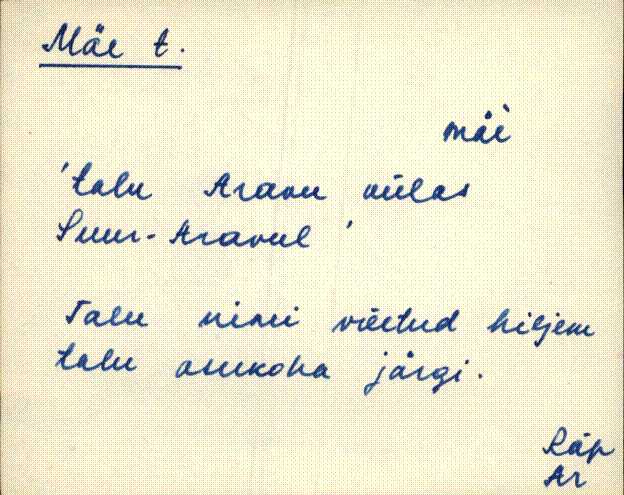 Mäe t.
mäè
'talu Aravu külas
Suur-Aravul'
Talu nimi võetud hiljem
talu asukoha järgi.
Räp
Ar